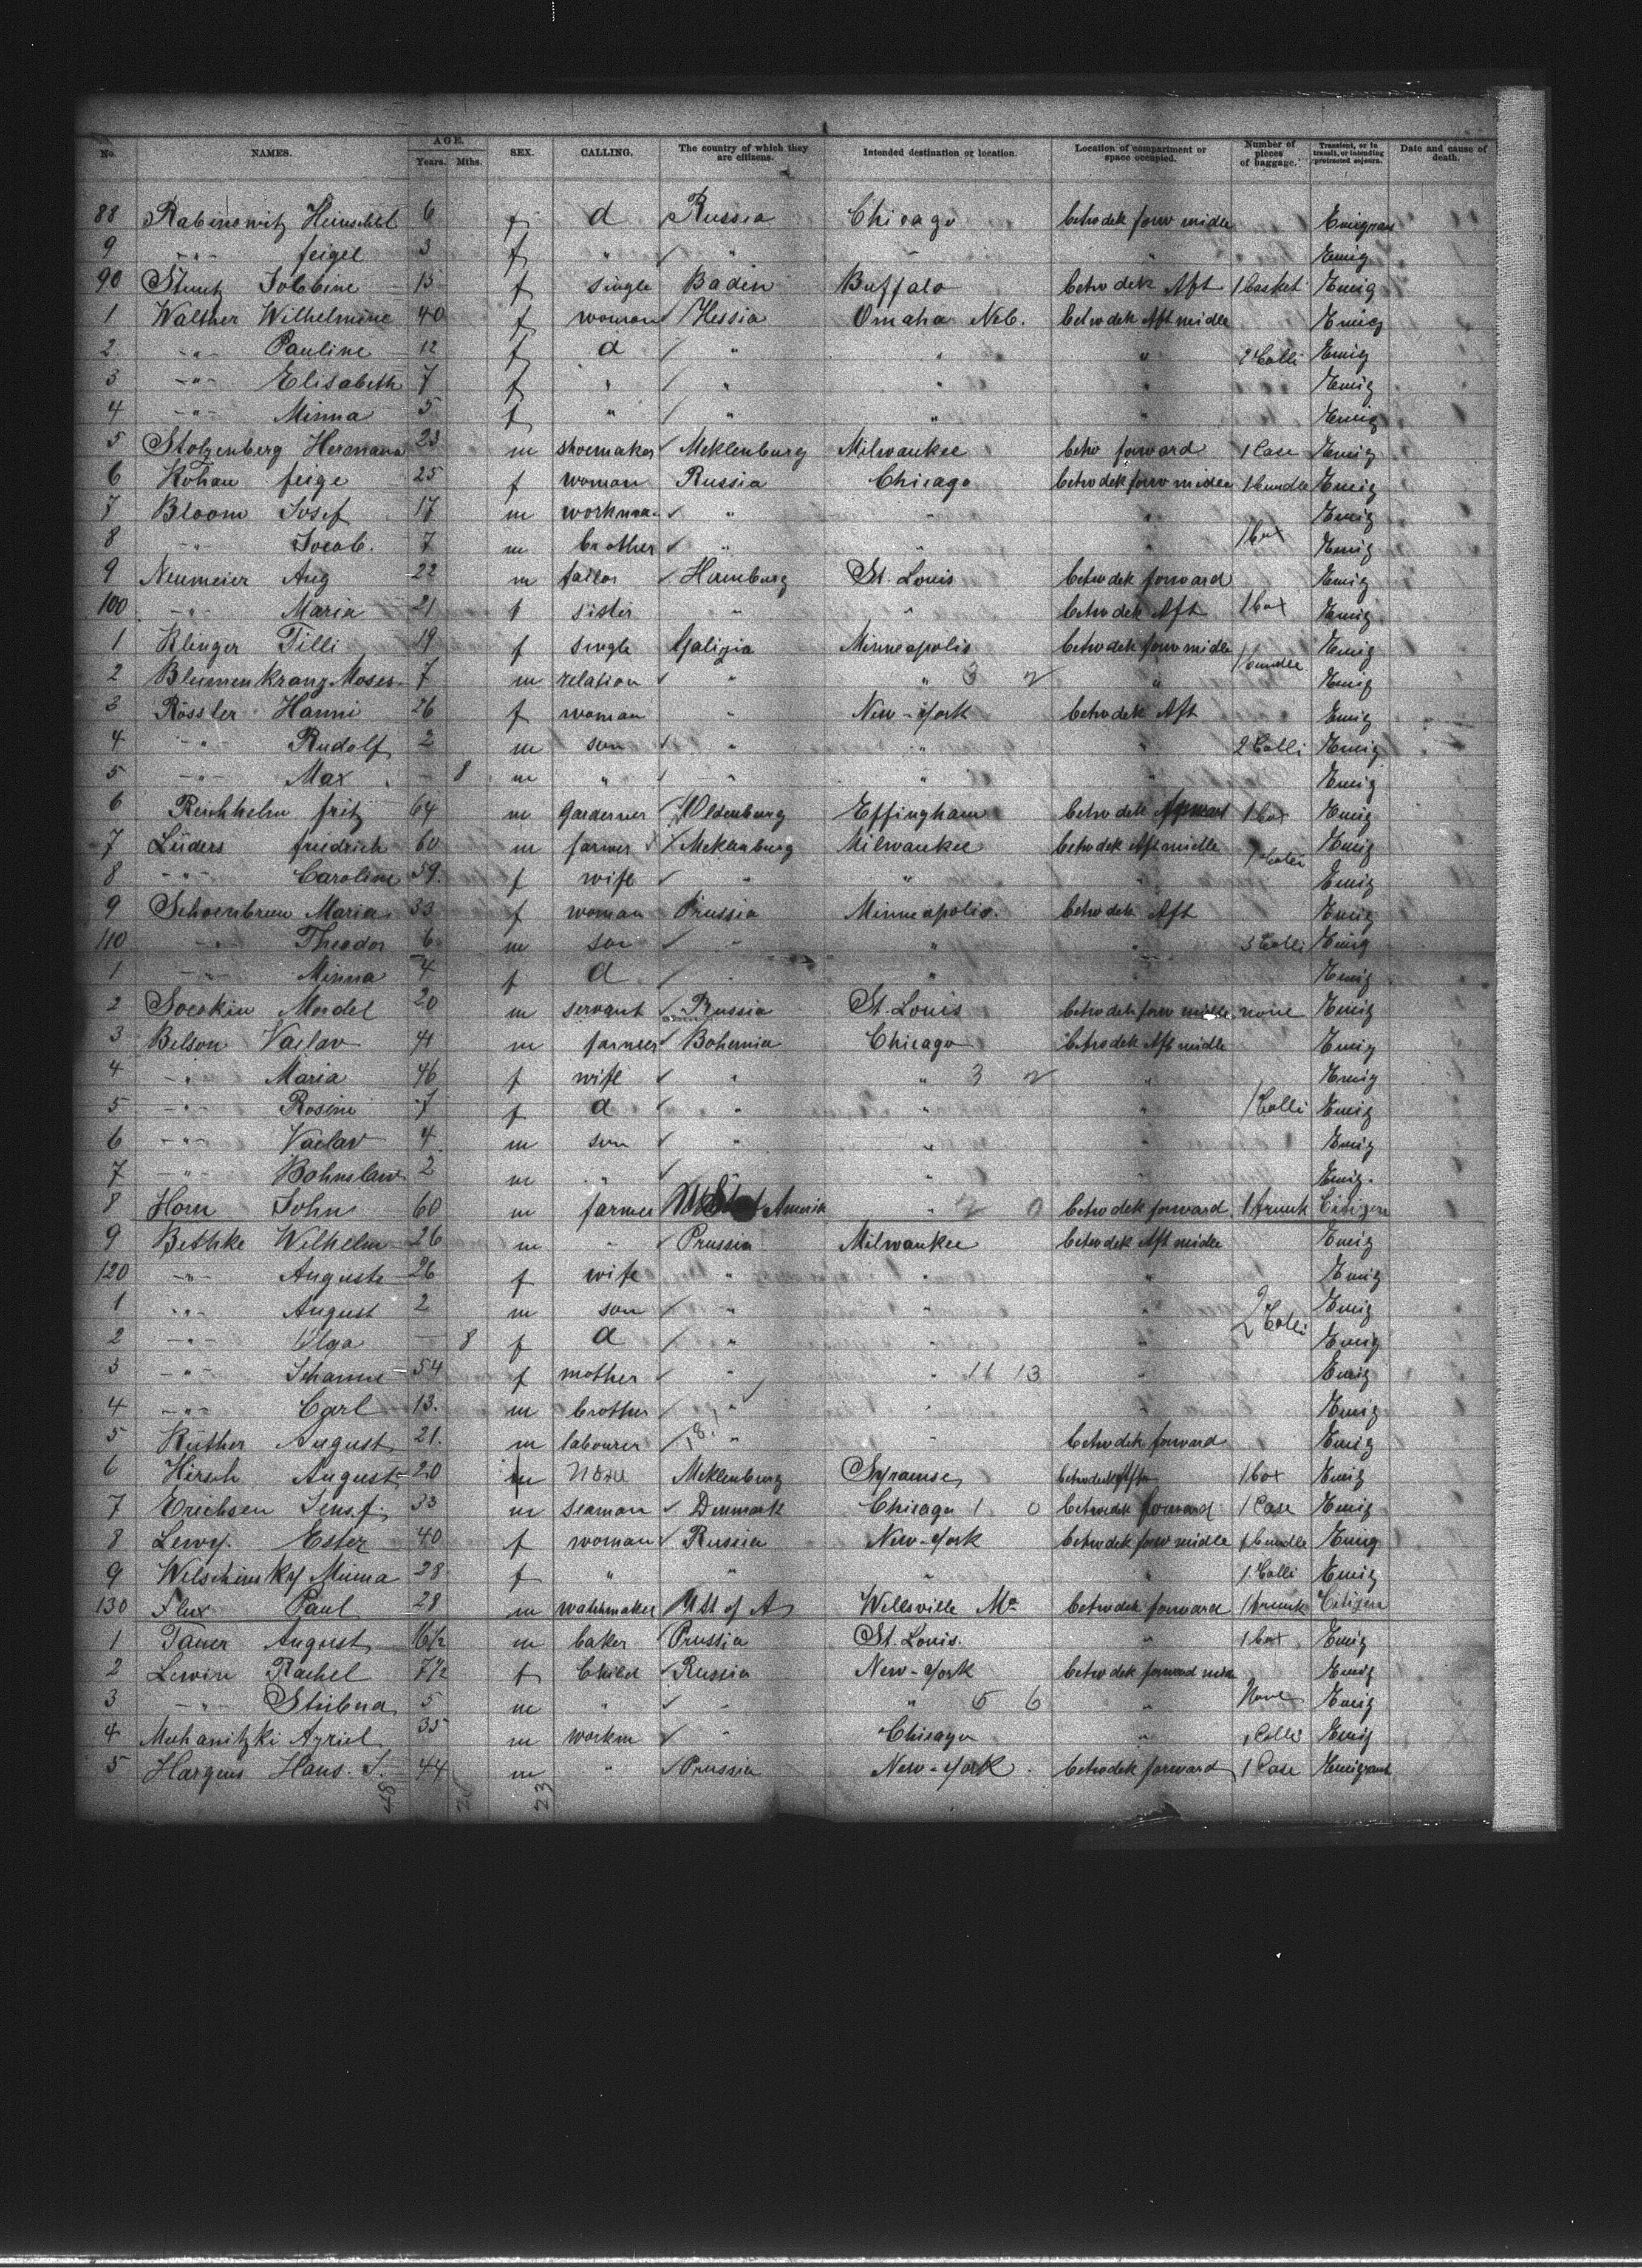 No. NAMES. AGE. Years. Mths. SEX. CALLING. The country of which they are citizens. Intended destination or location. Location of compartment or space occupied. Number of pieces of baggage. Transient, or in transit, or intending protracted sojourn. Date and cause of death.
88 Rabinowitz 6 f d Russia Chicago betwdek forw midle Emigrant
9 -"- feigel 3 f " " " Emig
90 15 f single Baden Buffalo betwdek Aft 1 basket Emig
1 Walther Wilhelmine 40 f woman Hessia Omaha Neb. betwdek Aft midle Emig
2 -"- Pauline 12 f d " " " 2 Colli Emig
3 -"- Elisabeth 7 f " " " " Emig
4 -"- Minna 5 f " " " " Emig
5 Stolzenberg Hermann 23 m shoemaker Meklenburg Milwaukee betw forward 1 Case Emig
6 Kohan feige 25 f woman Russia Chicago betwdek forw midle 1 bundle Emig
7 Bloom Josef 17 m workman " " " Emig
8 -"- Jocob. 7 m brother " " " 1 box Emig
9 Neumeier Aug 22 m tailor Hamburg St. Louis betwdek forward Emig
100 -"- Maria 21 f sister " " betwdek Aft 1 box Emig
1 Klinger Tilli 19 f single Galizia Minneapolis betwdek forw midle Emig
2 Blumenkranz Moses 7 m relation " " 3 2 " 1 bundle Emig
3 Rössler Hanni 26 f woman " New-York betwdek Aft Emig
4 -"- Rudolf 2 m son " " " 2 Colli Emig
5 -"- Max - 8 m " " " " Emig
6 Reichhelm fritz 64 m gardener Oldenburg Effingham betwdek 1 box Emig
7 Lüders friedrich 60 m farmer Meklenburg Milwaukee betwdek Aft midle 1 Colli Emig
8 -"- Caroline 59. f wife " " Emig
9 Maria 33 f woman Prussia Minneapolis. betwdek Aft Emig
110 -"- Theodor 6 m son " " " 3 Colli Emig
1 -"- Minna 4 f d " " Emig
2 Mordel 20 m servant Russia St. Louis betwdek forw midle none Emig
3 Belson Vaclav 41 m farmer Bohemia Chicago betwdek Aft midle Emig
4 -"- Maria 46 f wife " " 3 2 " Emig
5 -"- Rosine 7 f d " " " 1 Colli Emig
6 -"- Vaclav 4 m son " " Emig
7 -"- Bohuslaw 2 m " " Emig.
8 Horn John 60 m farmer Amerik " 2 0 betwdek forward 1 trunk Citizen
9 Bethke Wilhelm 26 m " Prussia Milwaukee betwdek Aft midle Emig
120 -"- Auguste 26 f wife " " " Emig
1 -"- August 2 m son " " " Emig
2 -"- Olga - 8 f d " " " 2 Colli Emig
3 -"- 54 f mother " " 11 13 " Emig
4 -"- Carl 13. m brother " " " Emig
5 Rüther August 21. m labourer " " betwdek forward Emig
6 Hirsch August 20 m none Meklenburg Syracuse betwdek Aft 1 box Emig
7 Erichsen Jens. f. 33 m seaman Denmark Chicago 1 0 betwdek forward 1 Case Emig
8 Lewy. Ester 40 f woman Russia New-York betwdek forw midle 1 bundle Emig
9 Minna 28 f " " " " 1 Colli Emig
130 Flux Paul 28 m watchmaker USt of A Wellsville betwdek forward 1 trunk Citizen
1 Tauer August 16½ m baker Prussia St. Louis. " 1 box Emig
2 Lewin Rachel 7½ f Child Russia New-York betwdek forward Emig
3 -"- 5 m " " " 5 6 " None Emig
4 35 m workm " Chicago " 1 Colli Emig
5 Hargens Hans. J. 44 m " Prussia New-York betwdek forward 1 Case Emigrant
48 23